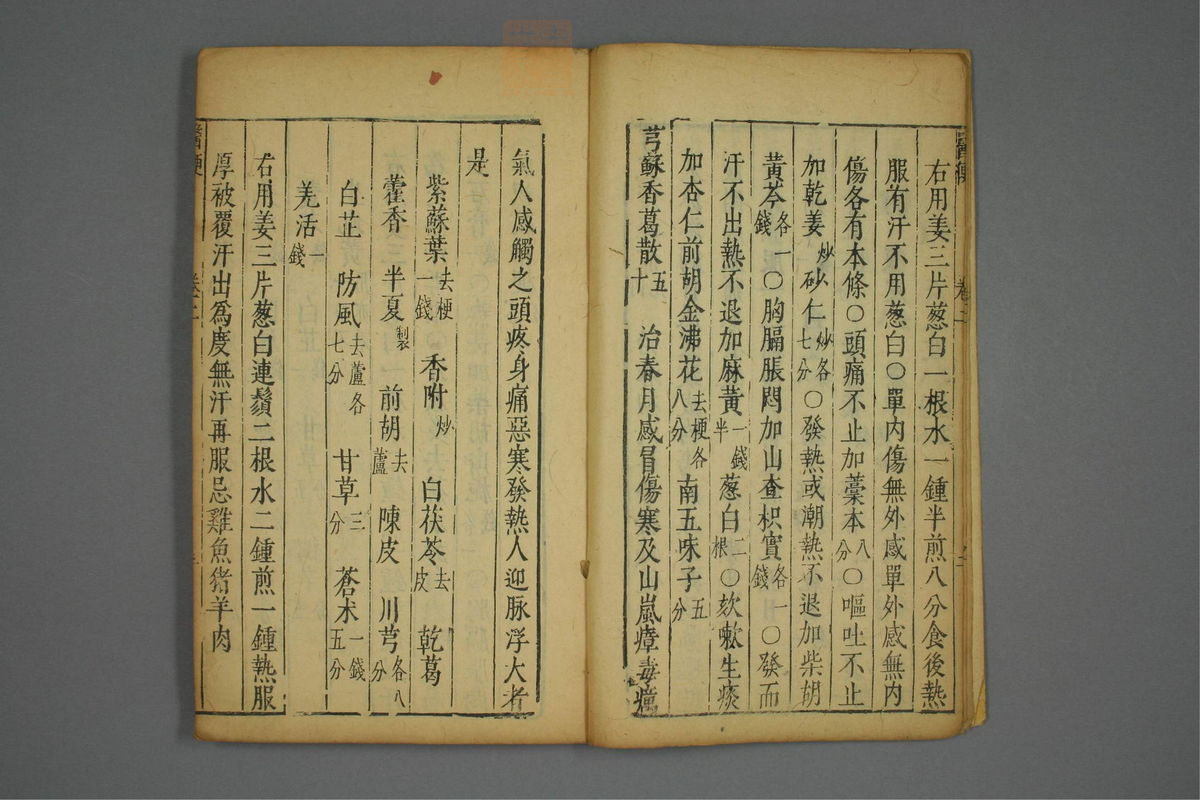 右用姜三片葱白一根水一鍾半煎八分食後熱
服有汗不用葱白〇單内傷無外感單外感無内
傷各有本條〇頭痛不止加藁本八分〇嘔吐不止
加乾姜炒砂仁炒各七分〇發熱或潮熱不退加柴胡
黄芩各一錢〇胸膈脹悶加山查枳實各一錢〇發而
汗不出熱不退加麻黄一錢半葱白二根〇欬嗽生痰
加杏仁前胡金沸花去梗各八分南五味子五分
芎蘇香葛散五十 治春月感冒傷寒及山嵐瘴毒瘟
氣人感觸之頭疼身痛惡寒發熱人迎脉浮大者
是
紫蘇葉去梗一錢 香附炒 白茯苓去皮 乾葛
藿香 半夏製 前胡去蘆 陳皮 川芎各八分
白芷 防風去蘆各七分 甘草三分 蒼术一錢五分
羌活一錢
右用姜三片葱白連鬚二根水二鍾煎一鍾熱服
厚被覆汗出爲度無汗再服忌雞魚猪羊肉
醫便 卷二